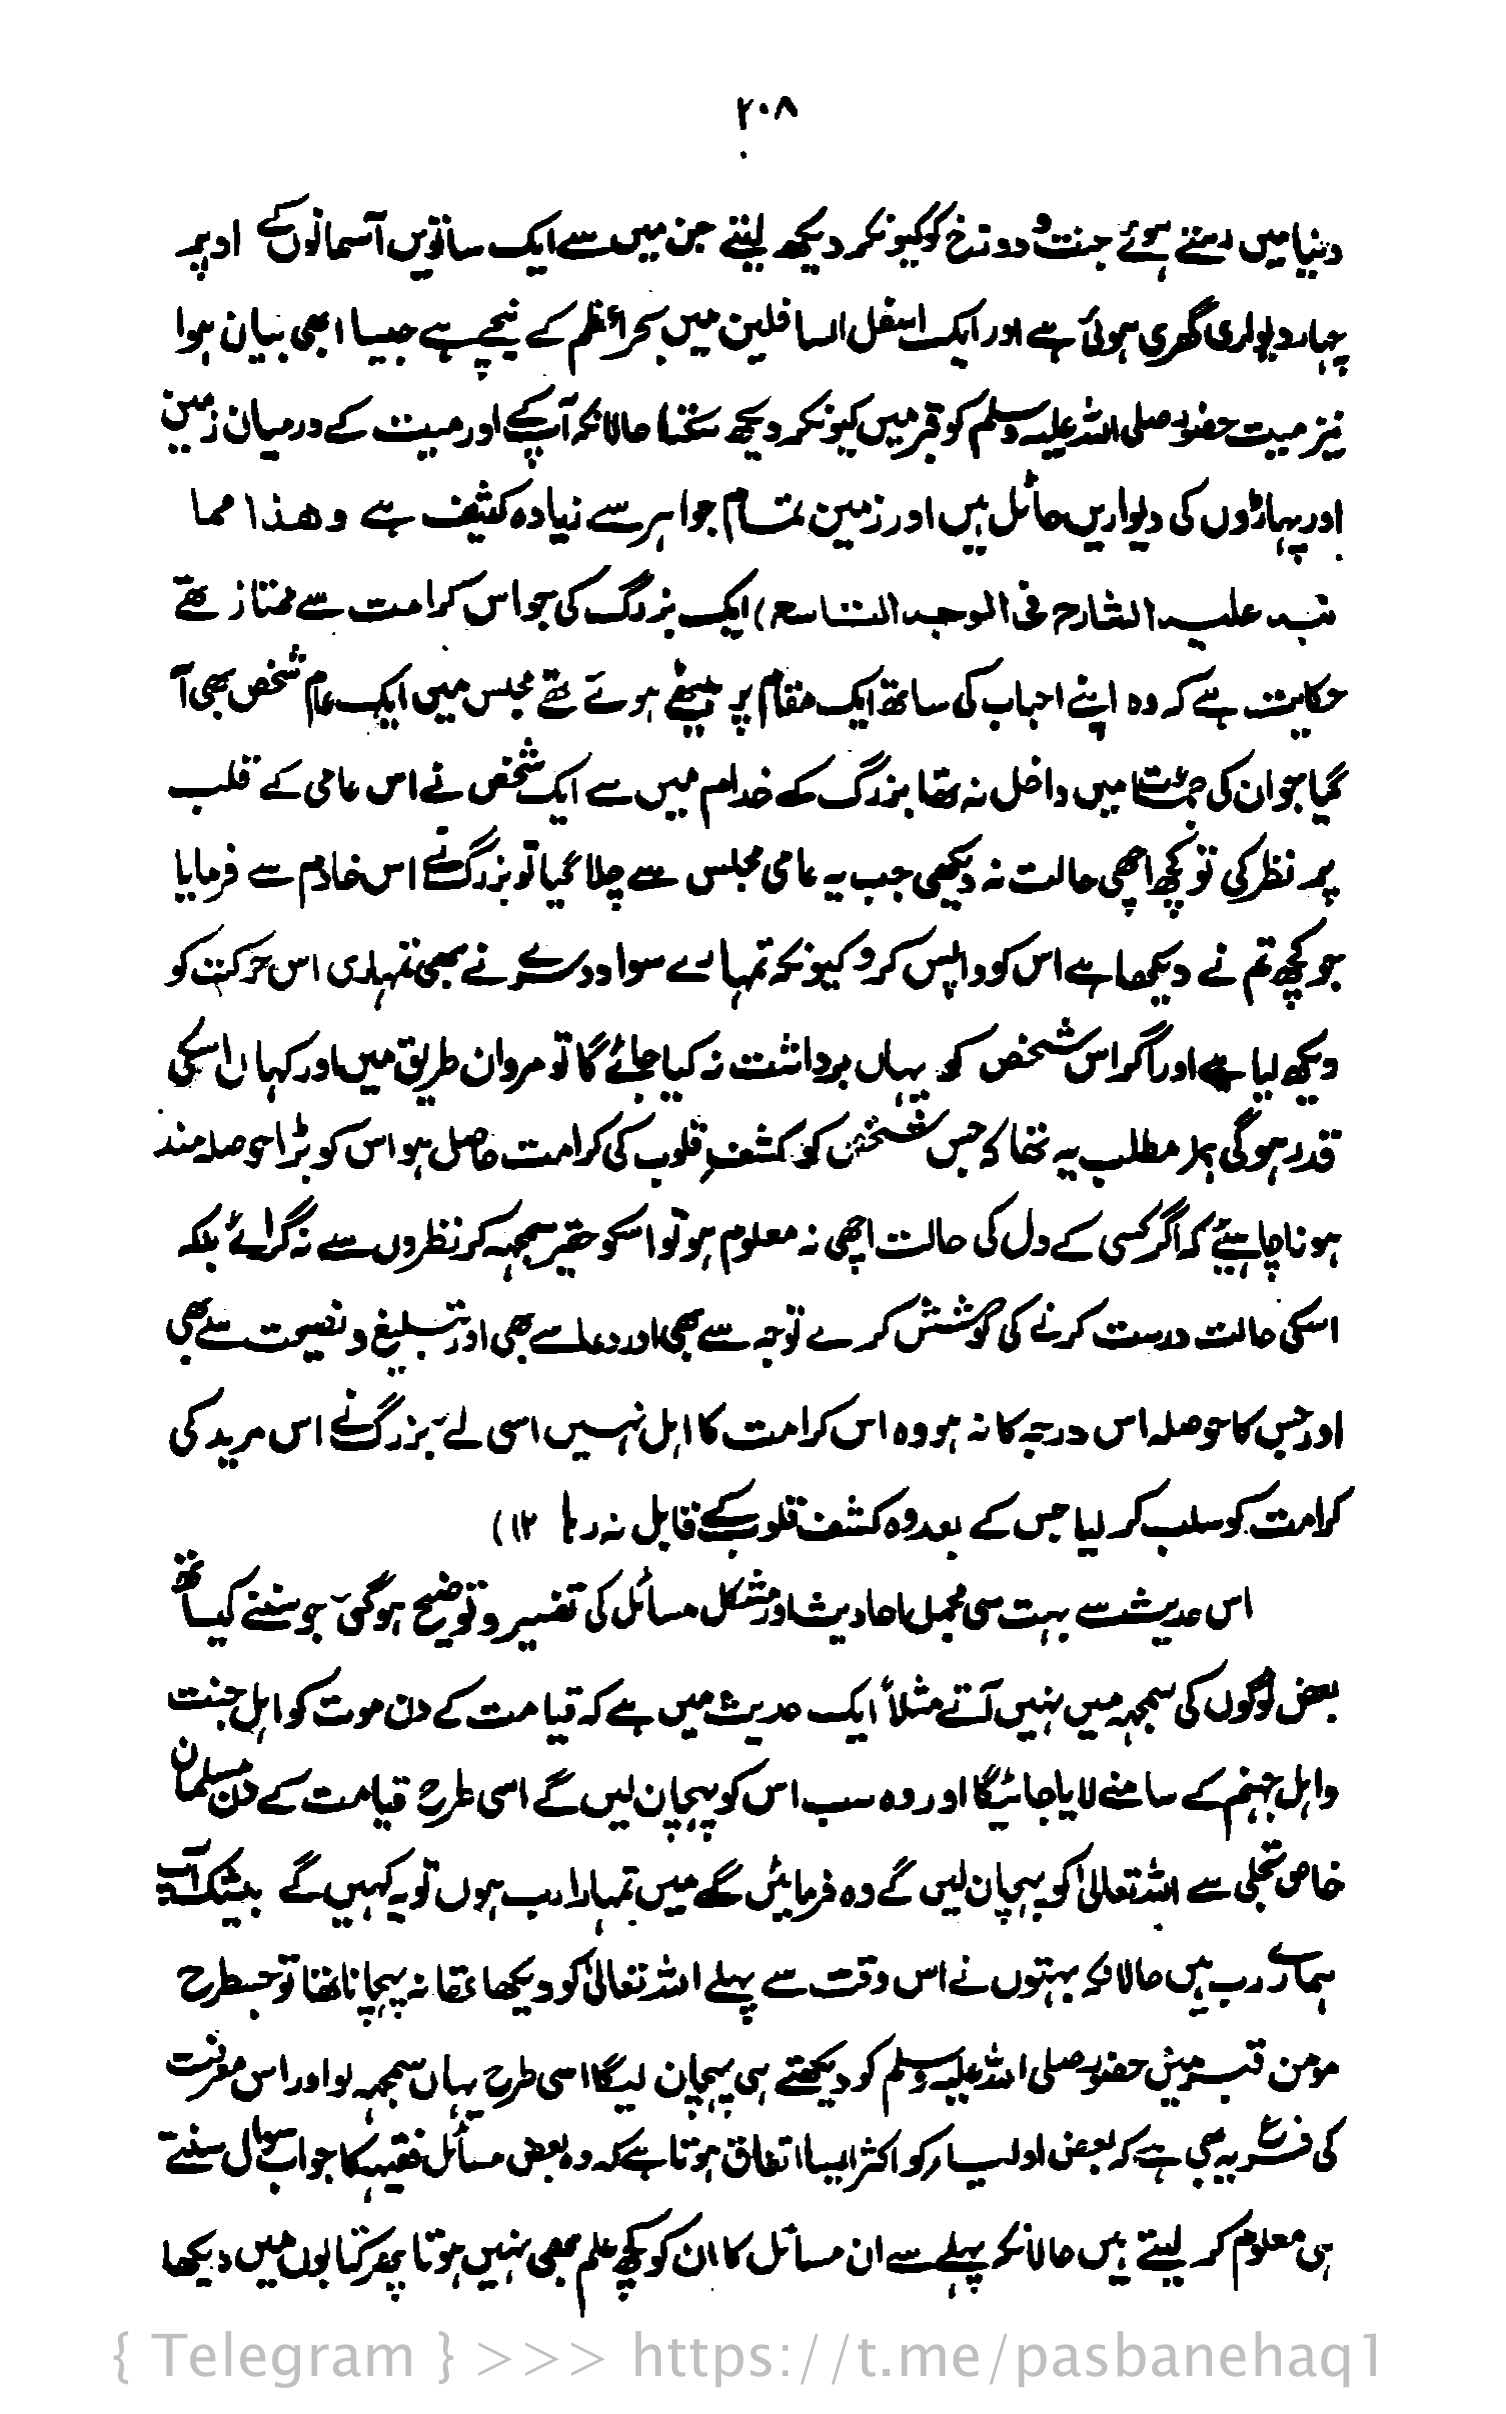 ۲۰۸
دنیا میں رہتے ہوئے جنت و دوزخ کو کیونکر دیکھ لیتے جن میں سے ایک ساتویں آسمانوں کے اوپر
چہار دیواری گھری ہوئی ہے اور ایک اسفل السافلین میں بحر اعظم کے نیچے ہے جیسا ابھی بیان ہوا
نیز میت حضور صلی اللہ علیہ وسلم کو قبر میں کیونکر دیکھ سکتا حالانکہ آپ کے اور میت کے درمیان زمین
اور پہاڑوں کی دیواریں حائل ہیں اور زمین تمام جواہر سے زیادہ کثیف ہے وھذا مما
نبه علیه الشارح فی الوجه التاسع) ایک بزرگ کی جو اس کرامت سے ممتاز تھے
حکایت ہے کہ وہ اپنے احباب کی ساتھ ایک مقام پر بیٹھے ہوئے تھے مجلس میں ایک عام شخص بھی آ
گیا جو ان کی جماعت میں داخل نہ تھا بزرگ کے خدام میں سے ایک شخص نے اس عامی کے قلب
پر نظر کی تو کچھ اچھی حالت نہ دیکھی جب یہ عامی مجلس سے چلا گیا تو بزرگ نے اس خادم سے فرمایا
جو کچھ تم نے دیکھا ہے اس کو واپس کرو کیونکہ تمہارے سوا دوسرے نے بھی تمہاری اس حرکت کو
دیکھ لیا ہے اور اگر اس شخص کو یہاں برداشت نہ کیا جائے گا تو مروان طریق میں اور کہاں اسکی
قدر ہوگی مطلب یہ تھا کہ جس شخص کو کشف قلوب کی کرامت حاصل ہو اس کو بڑا حوصلہ مند
ہونا چاہیئے کہ اگر کسی کے دل کی حالت اچھی نہ معلوم ہو تو اسکو حقیر سمجہہ کر نظروں سے نہ گرائے بلکہ
اسکی حالت درست کرنے کی کوشش کرے توجہ سے بھی اور دعا سے بھی اور تبلیغ و نصیحت سے بھی
اور جس کا حوصلہ اس درجہ کا نہ ہو وہ اس کرامت کا اہل نہیں اسی لئے بزرگ نے اس مرید کی
کرامت کو سلب کر لیا جس کے بعد وہ کشف قلوب کے قابل نہ رہا ۱۲)
اس حدیث سے بہت سی مجمل احادیث اور مشکل مسائل کی تفسیر و توضیح ہوگئی جو سننے کیساتھ
بعض لوگوں کی سمجہہ میں نہیں آتے مثلاً ایک حدیث میں ہے کہ قیامت کے دن موت کو اہل جنت
واہل جہنم کے سامنے لایا جائیگا اور وہ سب اس کو پہچان لیں گے اسی طرح قیامت کے دن مسلمان
خاص تجلی سے اللہ تعالیٰ کو پہچان لیں گے وہ فرمایئں گے میں تمہارا رب ہوں تو یہ کہیں گے بیشک آپ
ہمارے رب ہیں حالانکہ بہتوں نے اس وقت سے پہلے اللہ تعالیٰ کو دیکھا تھا نہ پہچانا تھا تو جسطرح
مومن قبر میں حضور صلی اللہ علیہ وسلم کو دیکھتے ہی پہچان لیگا اسی طرح یہاں سمجہہ لو اور اس معرفت
کی فرع یہ بھی ہے کہ بعض اولیاء کو اکثر ایسا اتفاق ہوتا ہے کہ وہ بعض مسائل فقیہہ کا جواب سوال سنتے
ہی معلوم کر لیتے ہیں حالانکہ پہلے سے ان مسائل کا ان کو کچھ علم بھی نہیں ہوتا پھر کتابوں میں دیکھا
{ Telegram } >>> https://t.me/pasbanehaq1